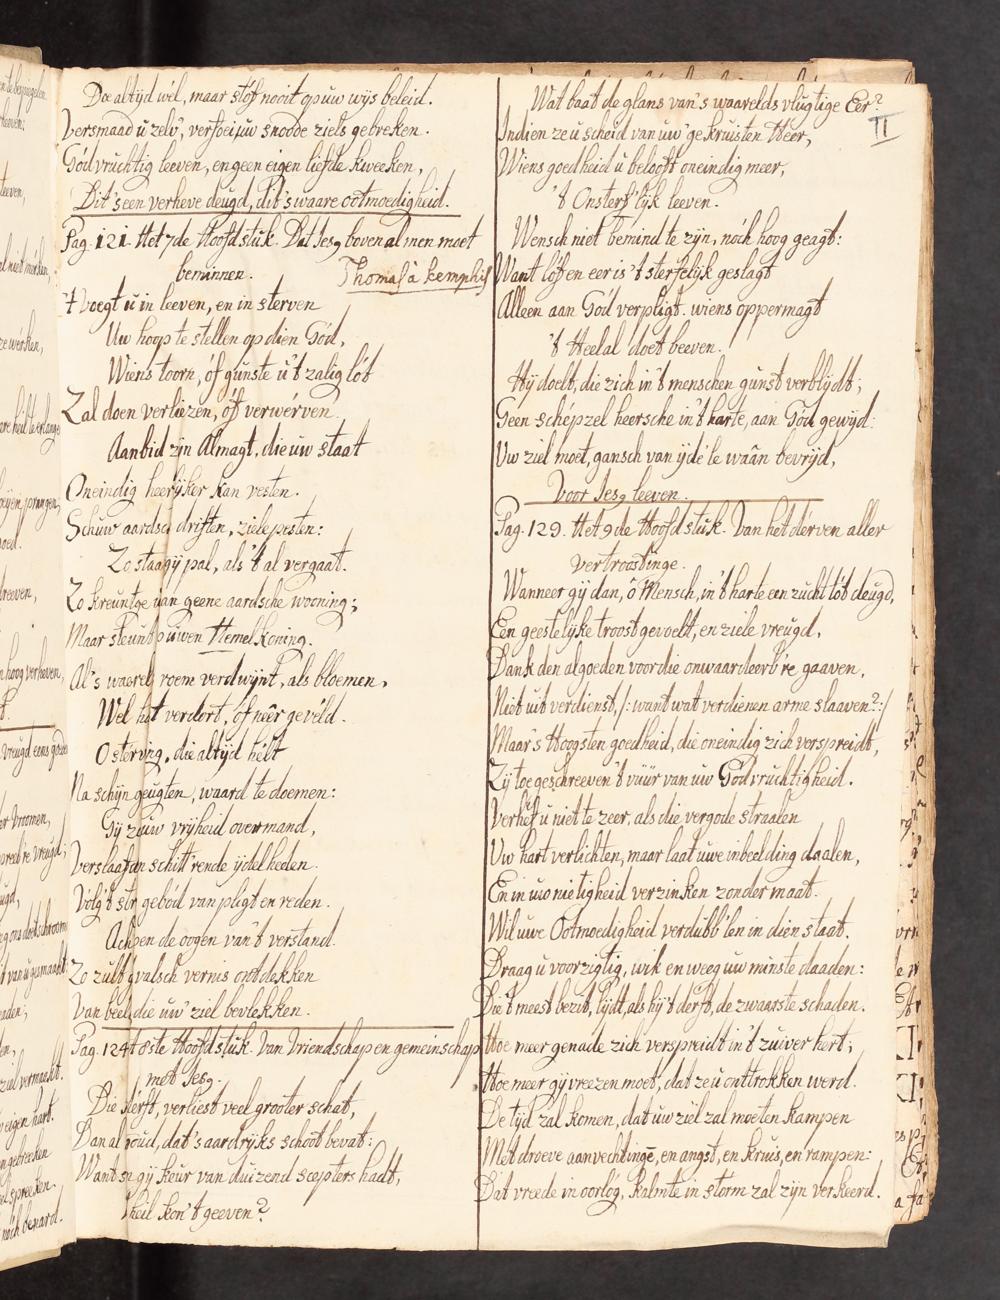 Doe altijd wél, maar stóf nooit op uw wijs beleid.
Versmaad u zelv', verfoei uw snoode ziels gebreken.
Gódvruchtig leeven, en geen eigen liefde kweeken,
Dit 's een verheve deugd, dit 's waare ootmoedigheid.
Pag. 121. Het 7de Hoofdstuk. Dat Jesus boven al men moet
beminnen. Thomas à Kemphis
't Voegt u in leeven, en in sterven
Uw hoop te stellen op dien Gód,
Wiens toorn, óf gunste u 't zalig lót
Zal doen verliezen, óf verwerven.
Aanbid zijn Almagt, die uw staat
Oneindig heerlijker kan vesten.
Schuw aardsche driften, zielepesten:
Zo staa gij pal, als 't al vergaat.
Zo kreunt ge van geene aardsche wooning;
Maar steunt op uwen Hemelkoning.
Al 's waerelds roem verdwijnt, als bloemen,
Wel hat verdort, óf neêr geveld.
O sterving, die altijd helt
Na schijngeugten, waard te doemen:
Gij zuiw vrijheid overmand,
Verslaafd aan schitt'rende ijdelheden.
Vólgt str gebód van pligt en reden.
Ach open de oogen van 't verstand.
Zo zult g valsch vernis ontdekken
Van beeld die uw' ziel bevlekken.
Pag. 124 't 8ste Hoofdstuk. Van Vriendschap en gemeinschap
met Jesus.
Die derft, verliest veel grooter schat,
Dan al goud, dat 's aardrijks schoot bevat:
Want sn gij keur van duizend scepters hadt,
heil kon 't geeven?
Wat baat de glans van 's waarelds vlugtige Eer?
II
Indien ze u scheid van uw' gekruisten Heer,
Wiens goedheid u belooft oneindig meer,
't Onsterf'lijk leeven.
Wensch niet bemind te zijn, nóch hoog geagt:
Want lóf en eer is 't sterfelijk geslagt
Alleen aan Gód verpligt. wiens oppermagt
't Heelal doet beeven.
Hij doelt, die zich in 't menschen gunst verblijdt;
Geen schépzel heersche in 't harte, aan God gewijd:
Uw ziel moet, gansch van ijdéle waân bevrijd,
Voor Jesus leeven.
Pag. 129. Het 9de Hoofdstuk. Van het dérven aller
vertroostinge.
Wanneer gij dan, ô Mensch, in 't harte een zucht tót deugd,
Een geestelijke troost gevoelt, en ziele vreugd,
Dank den algoeden voor die onwaardeerb're gaaven,
Niet uit verdienst, /: want wat verdienen arme slaaven?:/
Maar 's Hoogsten goedheid, die oneindig zich verspreidt,
Zij toegeschreeven 't vuur van uw Godvruchtigheid.
Verhef u niet te zeer, als die vergode straalen
Uw hart verlichten, maar laat uwe inbeelding daalen,
En in uw nietigheid verzinken zonder maat.
Wil uwe Ootmoedigheid verdubb'len in dien staat.
Draag u voorzigtig, wik en weeg uw minste daaden:
Die 't meest bezit, lijdt, als hij 't derft, de zwaarste schaden.
Hoe meer genade zich verspreidt in 't zuiver hert;
Hoe meer gij vreezen moet, dat ze u onttrokken werd.
De tijd zal komen, dat uw ziel zal moeten kampen
Met droeve aanvechtinge, en angst, en kruis, en rampen:
Dat vreede in oorlog, kalmte in storm zal zijn verkeerd.